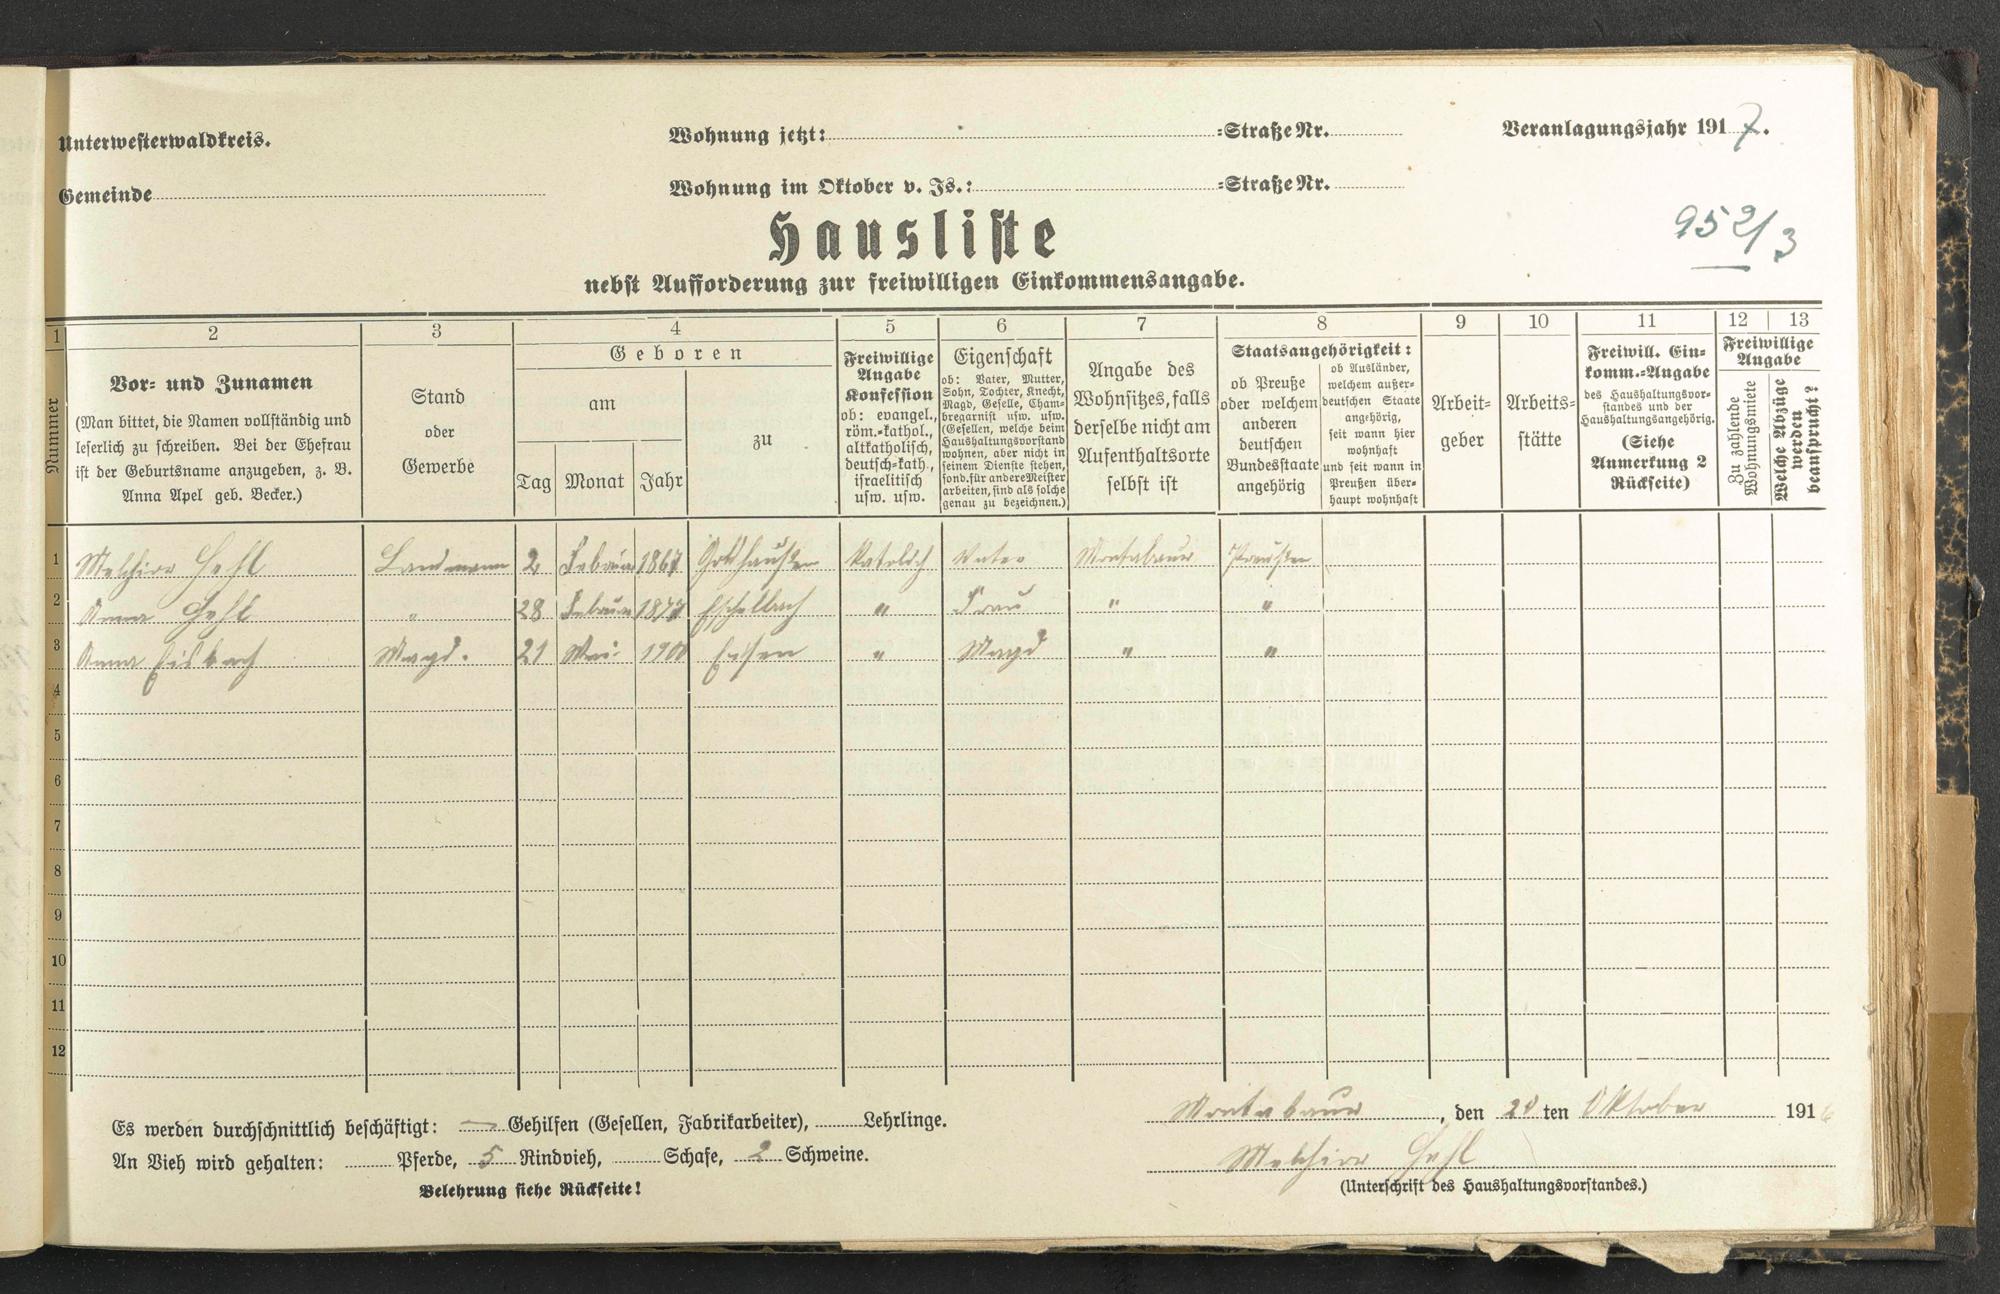 Unterwesterwaldkreis.
Wohnung jetzt: =Straße Nr.
Veranlagungsjahr 1917.
Gemeinde
Wohnung im Oktober v. Js.: =Straße Nr.
952/3
Hausliste
nebst Aufforderung zur freiwilligen Einkommensangabe.
1 2 3 4 5 6 7 8 9 10 11 12 13
Nummer
Vor- und Zunamen
(Man bittet, die Namen vollständig und
leserlich zu schreiben. Bei der Ehefrau
ist der Geburtsname anzugeben, z. B.
Anna Apel geb. Becker.)
Stand
oder
Gewerbe
Geboren
am
zu
Tag Monat Jahr
Freiwillige
Angabe
Konfession
ob: evangel.,
röm.-kathol.,
altkatholisch,
deutsch-kath.,
israelitisch
usw. usw.
Eigenschaft
ob: Vater, Mutter,
Sohn, Tochter, Knecht,
Magd, Geselle, Cham-
bregarnist usw. usw.
(Gesellen, welche beim
Haushaltungsvorstand
wohnen, aber nicht in
seinem Dienste stehen,
sond. für andere Meister
arbeiten, sind als solche
genau zu bezeichnen.)
Angabe des
Wohnsitzes, falls
derselbe nicht am
Aufenthaltsorte
selbst ist
Staatsangehörigkeit:
ob Preuße
oder welchem
anderen
deutschen
Bundesstaate
angehörig
ob Ausländer,
welchem außer-
deutschen Staate
angehörig,
seit wann hier
wohnhaft
und seit wann in
Preußen über-
haupt wohnhaft
Arbeit-
geber
Arbeits-
stätte
Freiwill. Ein-
komm.-Angabe
des Haushaltungsvor-
standes und der
Haushaltungsangehörig.
(Siehe
Anmerkung 2
Rückseite)
Freiwillige
Angabe
Zu zahlende
Wohnungsmiete
Welche Abzüge
werden
beansprucht?
1 Melchior Hehl Landmann 2 Februar 1867 Goldhausen Katolisch Vater Montabaur Preußen
2 Anna Hehl " 28 Februar 1877 Eschelbach " Frau " "
3 Anna Eisbach Magd. 21 Mai 1900 Essen " Magd " "
4
5
6
7
8
9
10
11
12
Es werden durchschnittlich beschäftigt: — Gehilfen (Gesellen, Fabrikarbeiter), Lehrlinge.
An Vieh wird gehalten: Pferde, 5 Rindvieh, Schafe, 2 Schweine.
Belehrung siehe Rückseite!
Montabaur, den 20 ten Oktober 1916
Melchior Hehl
(Unterschrift des Haushaltungsvorstandes.)